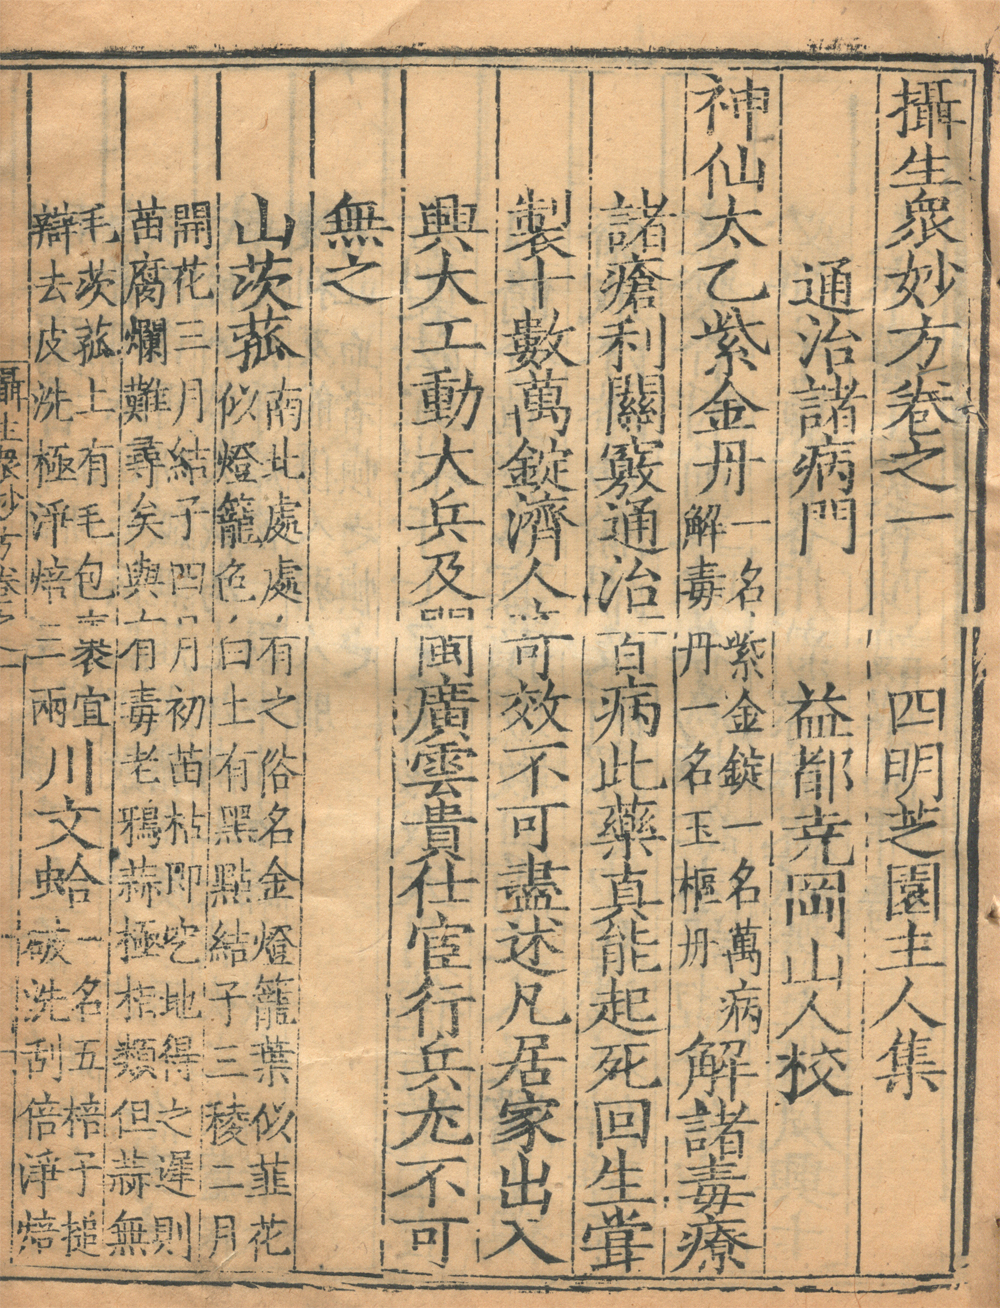 攝生衆妙方卷之一　四明芝園主人集
通治諸病門　益都尭岡山人校
神仙太乙紫金丹　一名紫金錠一名萬病
解毒丹一名玉樞丹　解諸毒療
諸瘡利關竅通治百病此藥真能起死回生甞
製十數萬錠濟人奇效不可盡述凡居家出入
興大工動大兵及閩廣雲貴仕宦行兵尤不可
無之
山茨菰　南北處處有之俗名金燈籠葉似韭花
似燈籠色白上有黑點結子三稜二月
開花三月結子四月初苗枯即空地得之遲則
苗腐爛難尋矣與有毒老鴉蒜極相類但蒜無
毛茨菰上有毛包裹宜
辯去皮洗極淨焙二兩　川文蛤　一名五棓子搥
破洗刮倍淨焙
攝生衆妙方卷之一